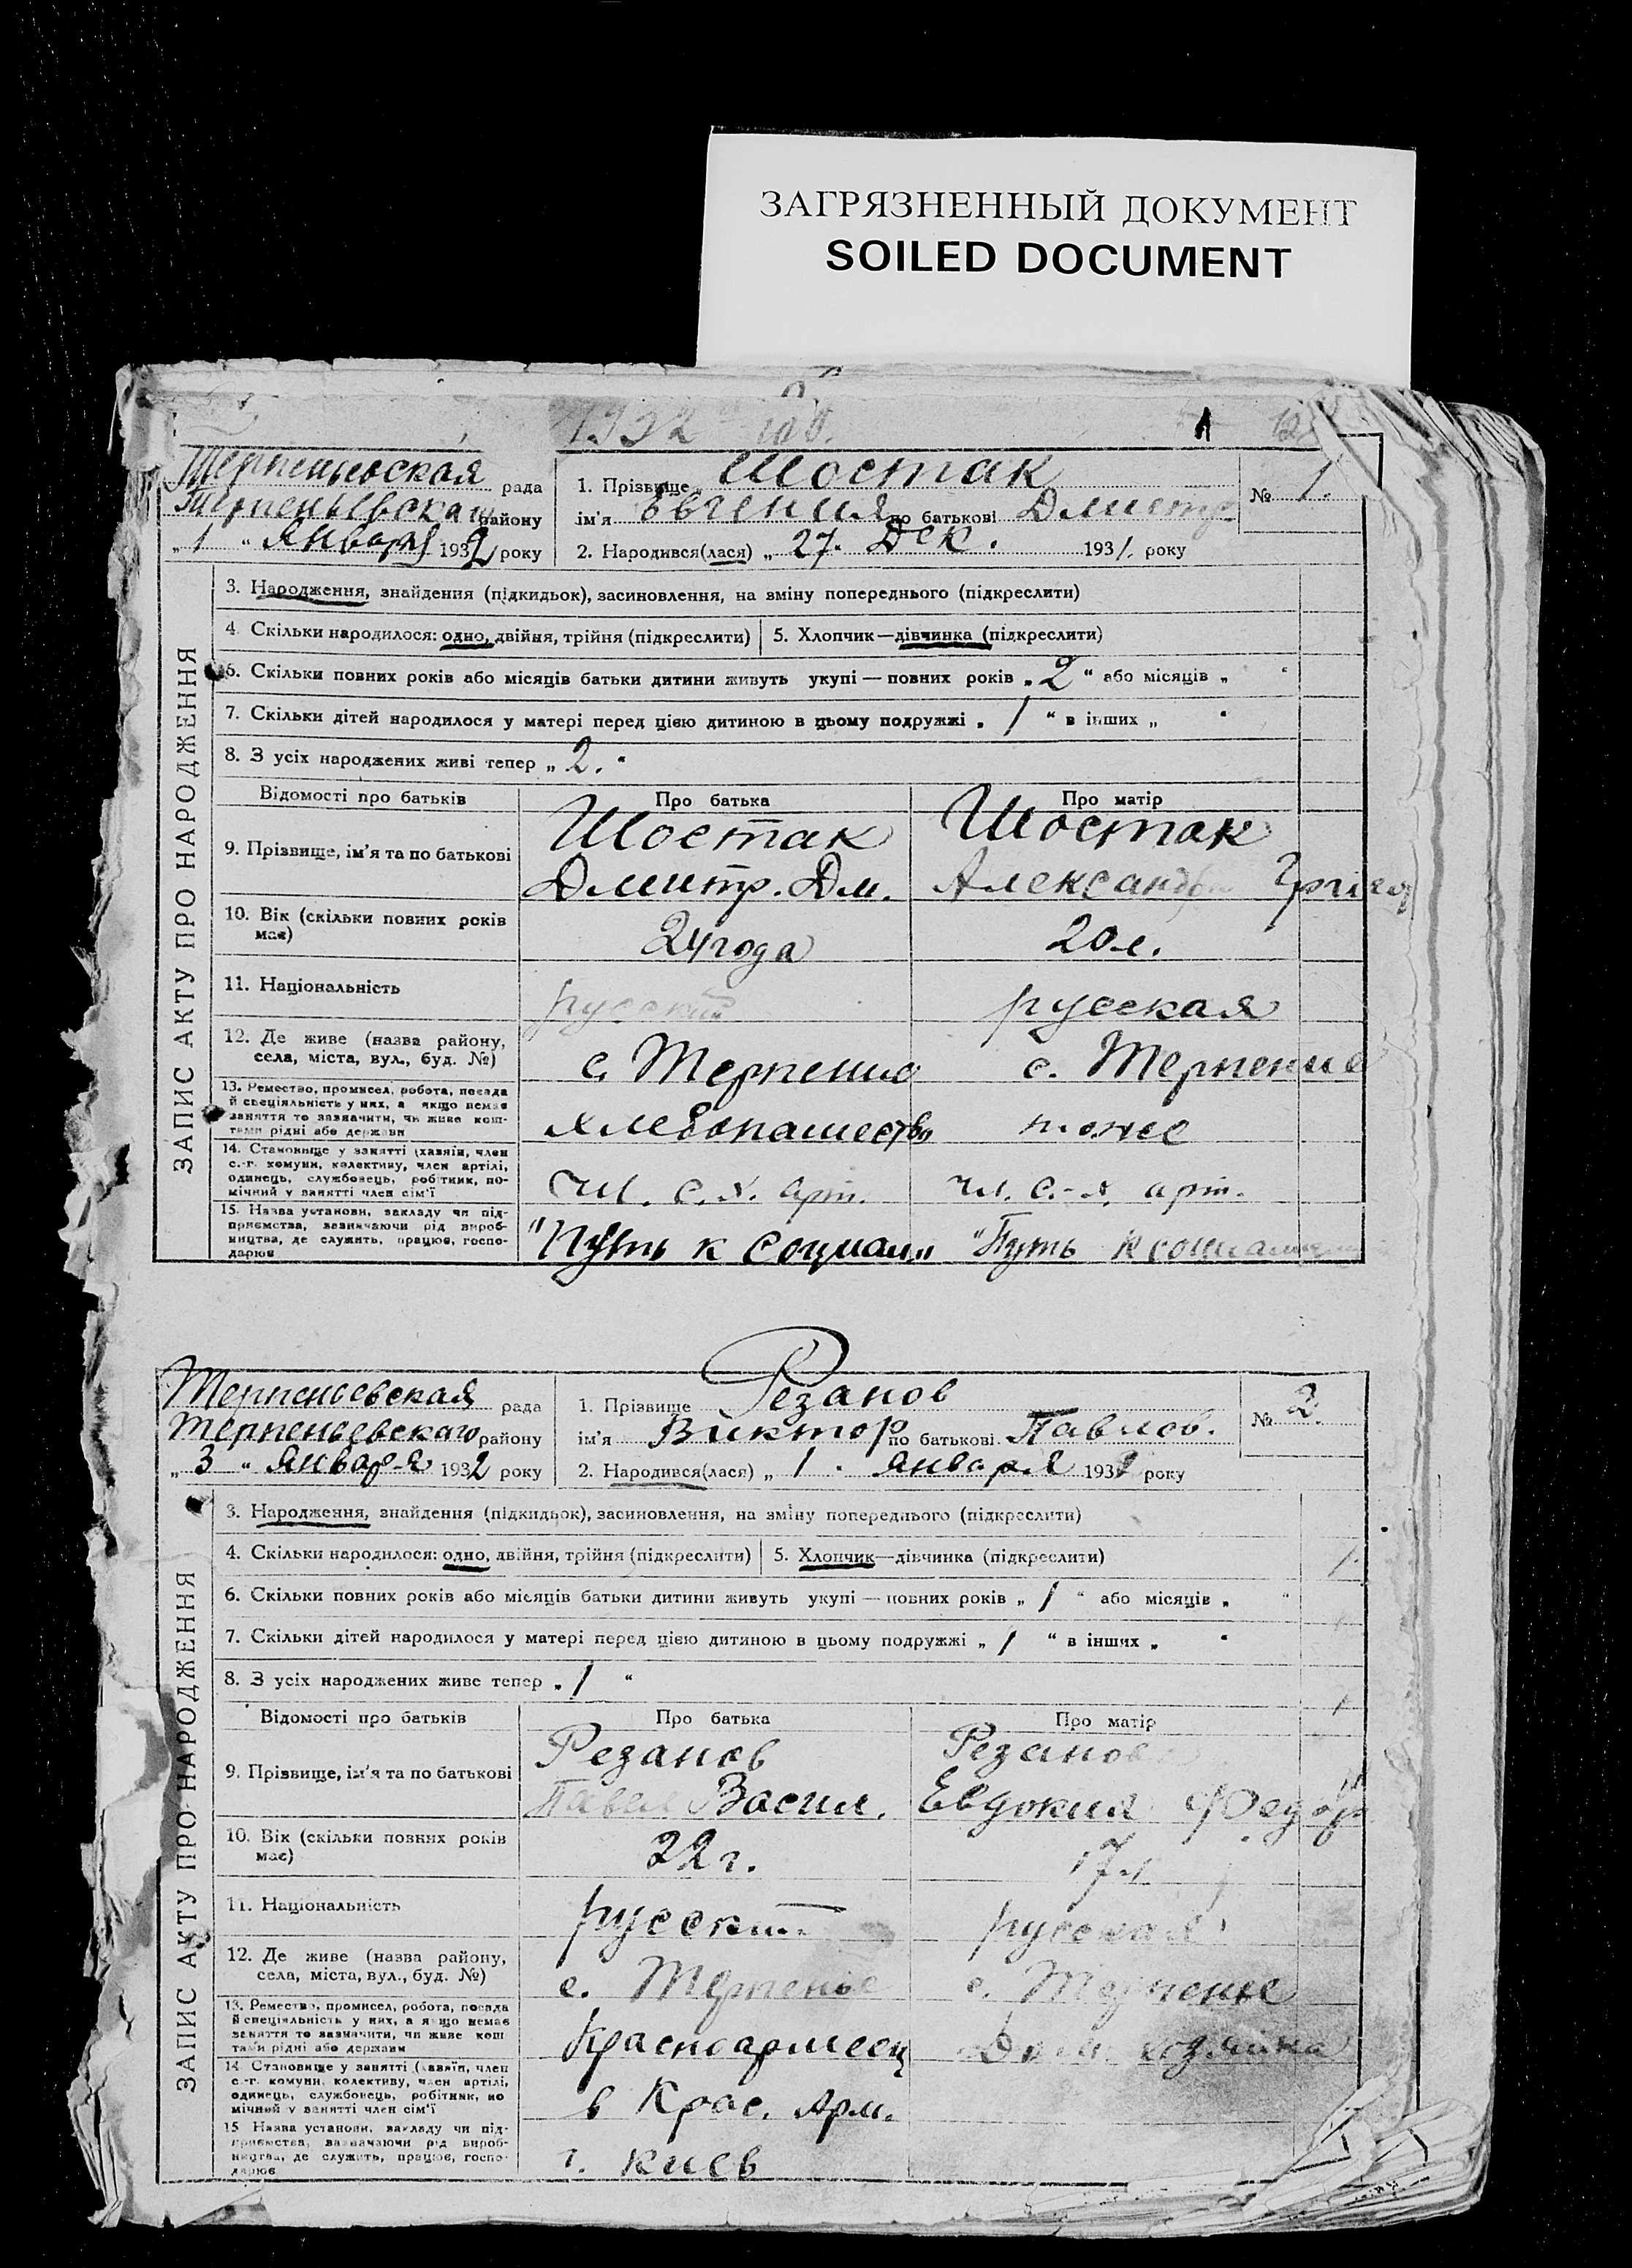 ЗАГРЯЗНЕННЫЙ ДОКУМЕНТ
SOILED DOCUMENT
1932 год.
Терпеньевская рада
Терпеньевскаго району
„ 1 “ Января 1932 року
1. Прізвище Шостак
ім'я Евгения по батькові Дмитр
2. Народився(лася) „ 27. Дек. 1931. року
№ 1.
ЗАПИС АКТУ ПРО НАРОДЖЕННЯ
3. Народження, знайдення (підкидьок), засиновлення, на зміну попереднього (підкреслити)
4. Скільки народилося: одно, двійня, трійня (підкреслити) 5. Хлопчик—дівчинка (підкреслити)
6. Скільки повних років або місяців батьки дитини живуть укупі — повних років „ 2 “ або місяців „ “
7. Скільки дітей народилося у матері перед цією дитиною в цьому подружжі „ 1 “ в інших „ “
8. З усіх народжених живі тепер „ 2. “
Відомості про батьків Про батька Про матір
9. Прізвище, ім'я та по батькові
Шостак Шостак
Дмитр. Дм. Александра
10. Вік (скільки повних років має) 24 года 20 л.
11. Національність русский русская
12. Де живе (назва району, села, міста, вул., буд. №) с. Терпение с. Терпение
13. Ремество, промисел, робота, посада
й спеціяльність у них, а якщо немає
заняття то зазначити, чи живе кош-
тами рідні або держави
хлебопашество тоже
14. Становище у занятті (хазяїн, член
с.-г. комуни, колективу, член артілі,
одинець, службовець, робітник, по-
мічний у занятті член сім'ї
чл. с. х. арт. чл. с.-х. арт.
15. Назва установи, закладу чи під-
приємства, зазначаючи рід вироб-
ництва, де служить, працює, госпо-
дарює
"Путь к социал." "Путь к социализму
Терпеньевская рада
Терпеньевскаго району
„ 3 “ Января 1932 року
1. Прізвище Резанов
ім'я Виктор по батькові Павлов.
2. Народився(лася) „ 1 . января 1932 року
№ 2.
ЗАПИС АКТУ ПРО НАРОДЖЕННЯ
3. Народження, знайдення (підкидьок), засиновлення, на зміну попереднього (підкреслити)
4. Скільки народилося: одно, двійня, трійня (підкреслити) 5. Хлопчик—дівчинка (підкреслити)
6. Скільки повних років або місяців батьки дитини живуть укупі — повних років „ 1 “ або місяців „ “
7. Скільки дітей народилося у матері перед цією дитиною в цьому подружжі „ 1 “ в інших „ “
8. З усіх народжених живе тепер „ 1 “
Відомості про батьків Про батька Про матір
9. Прізвище, ім'я та по батькові
Резанов Резанова
Павел Васил. Евдокия Федор
10. Вік (скільки повних років має) 22 г. 17 л.
11. Національність русский русская
12. Де живе (назва району, села, міста, вул., буд. №) с. Терпенье с. Терпенье
13. Ремество, промисел, робота, посада
й спеціяльність у них, а якщо немає
заняття то зазначити, чи живе кош
тами рідні або держави
Красноармеец Дом. хозяйка
14. Становище у занятті (хазяїн, член
с.-г. комуни, колективу, член артілі,
одинець, службовець, робітник, по
мічний у занятті член сім'ї
в Крас. Арм.
15 Назва установи, закладу чи під-
приємства, зазначаючи рід вироб-
ництва, де служить, працює, госпо-
дарює
г. Киев